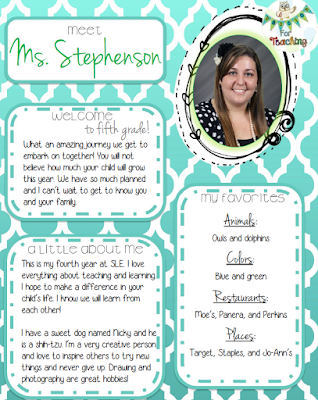 meet
Ms. Stephenson
For
Teaching
welcome
to fifth grade!
What an amazing journey we get to
embark on together! You will not
believe how much your child will grow
this year. We have so much planned
and I can't wait to get to know you
and your family.
a little about me
This is my fourth year at SLE. I love
everything about teaching and learning.
I hope to make a difference in your
child's life. I know we will learn from
each other!
I have a sweet dog named Nicky and he
is a shih-tzu. I'm a very creative person
and love to inspire others to try new
things and never give up. Drawing and
photography are great hobbies!
my favorites
Animals:
Owls and dolphins
Colors:
Blue and green
Restaurants:
Moe's, Panera, and Perkins
Places:
Target, Staples, and Jo-Ann's